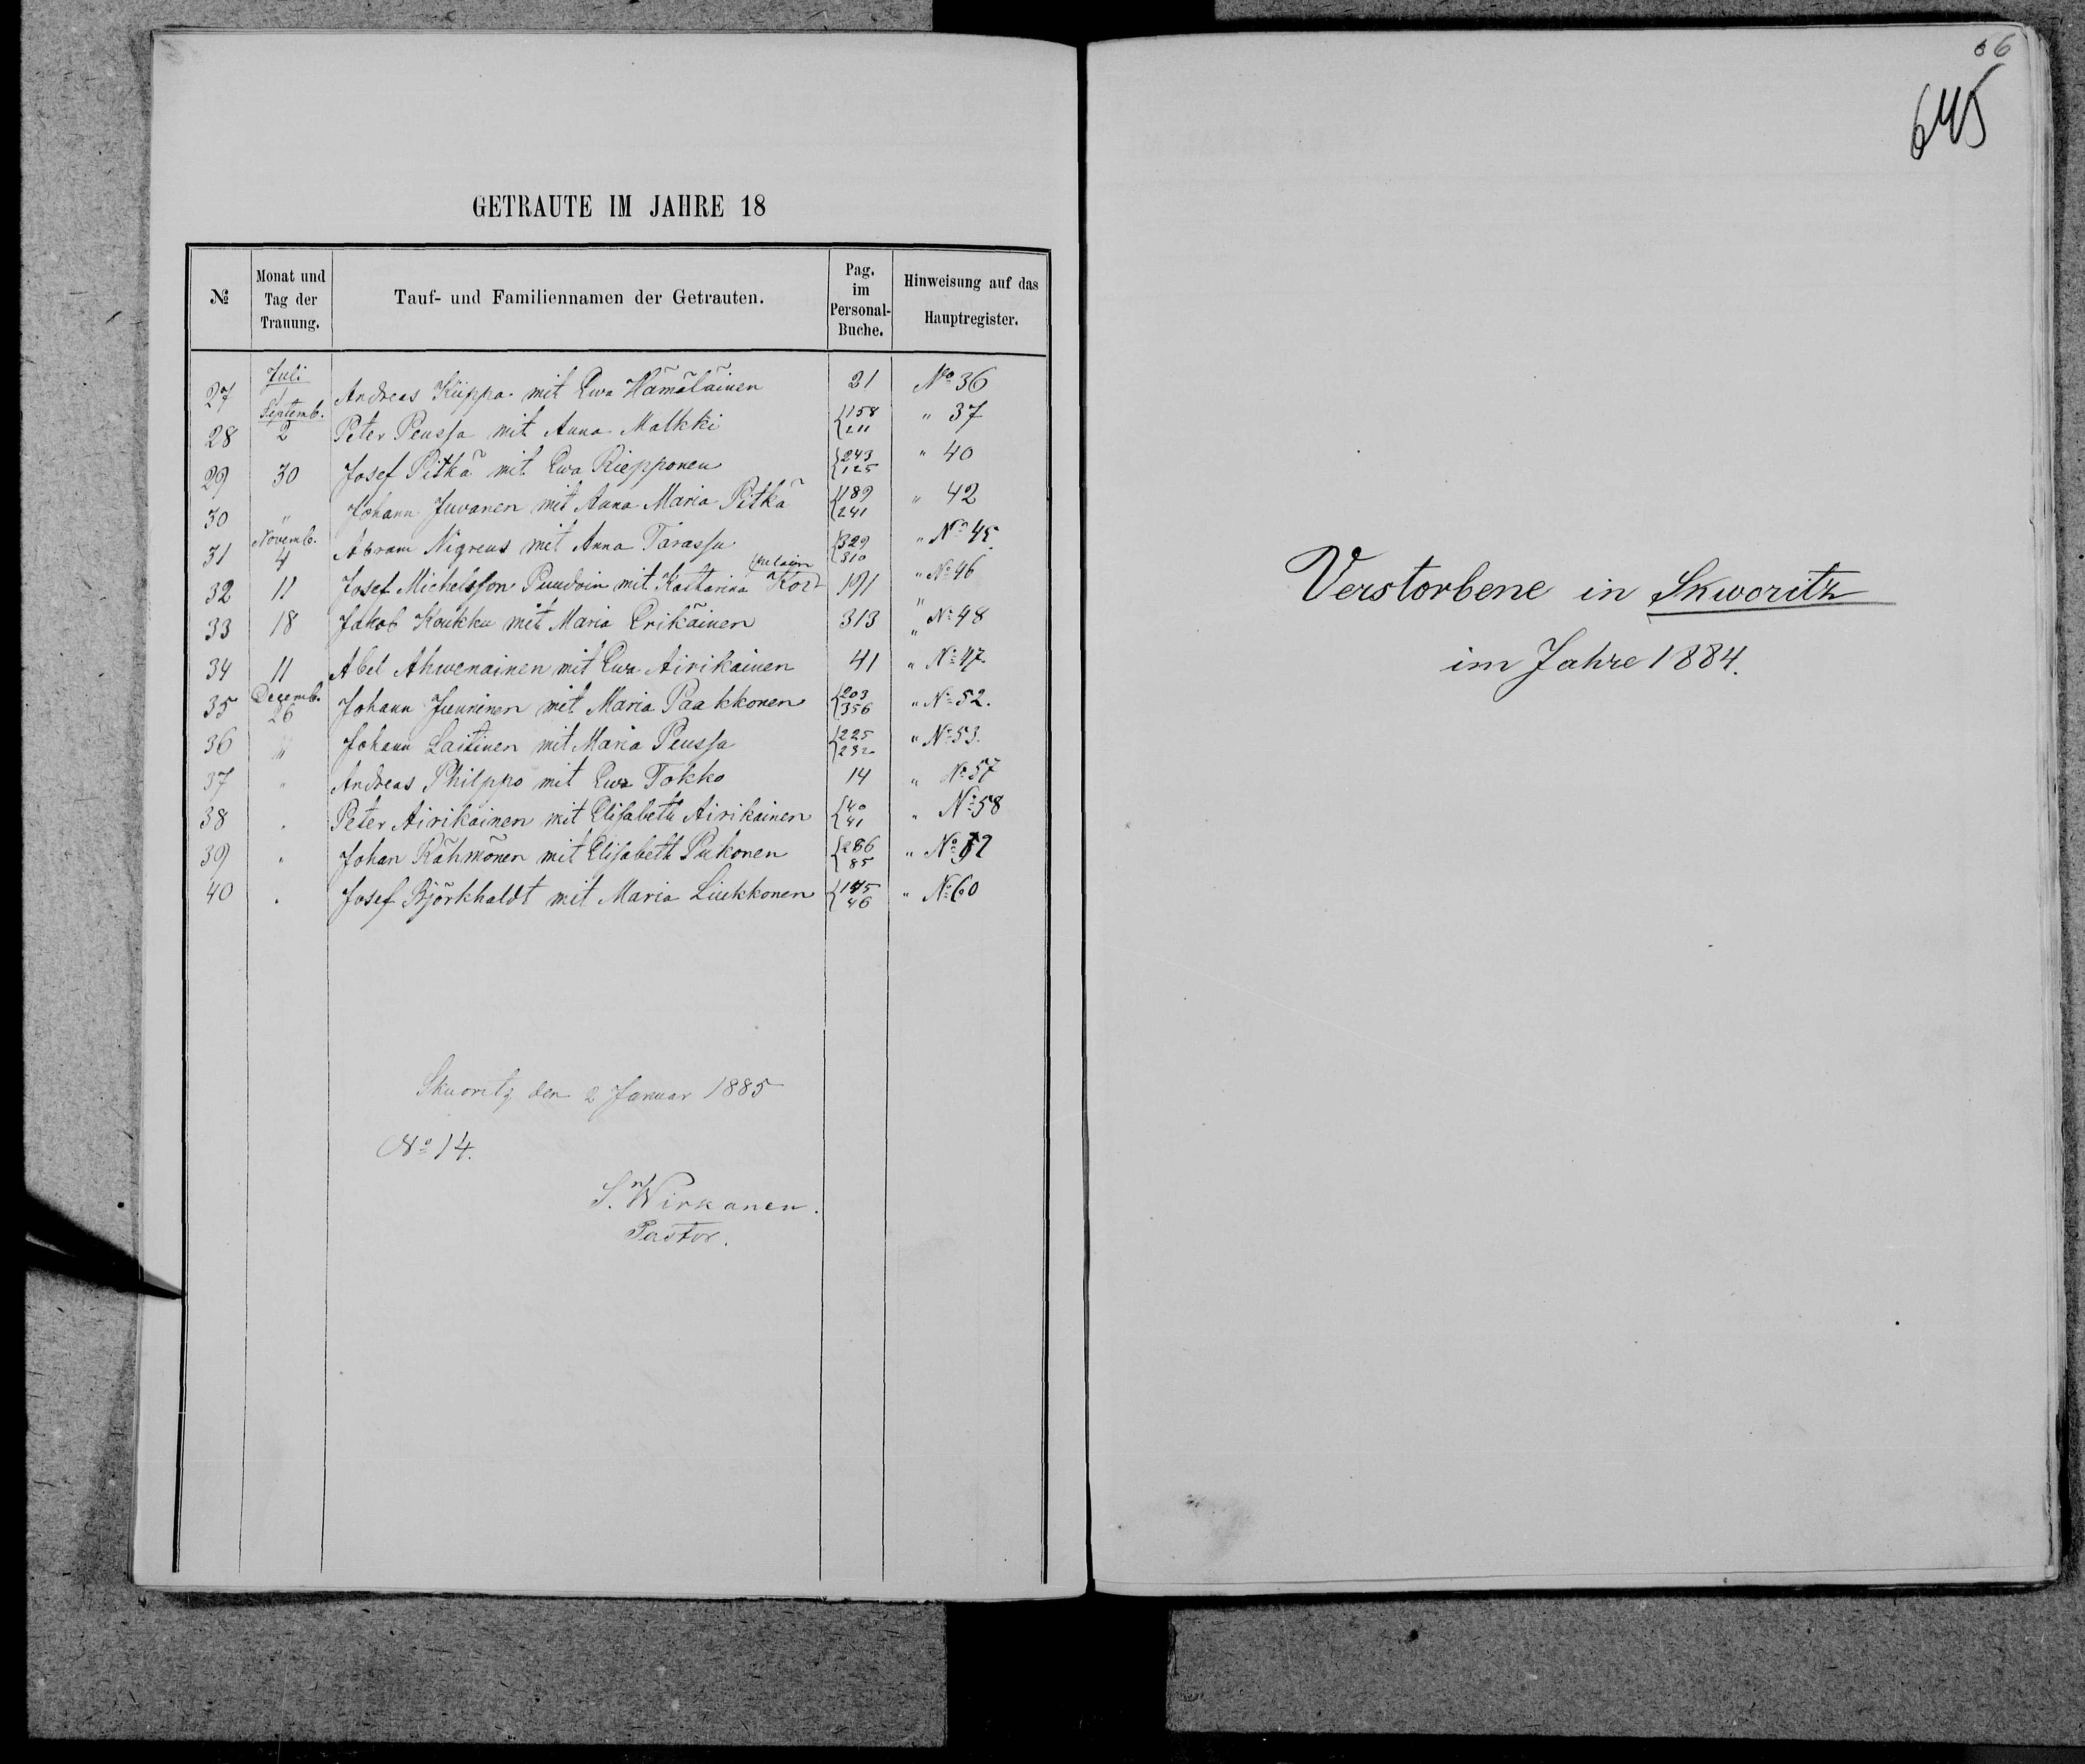 GETRAUTE IM JAHRE 18
№ Monat und Tag der Trauung. Tauf- und Familiennamen der Getrauten. Pag. im Personal-Buche. Hinweisung auf das Hauptregister.
Juli
27 Andreas Kiippa mit Ewa Hämäläinen 21 No 36
Septemb.
28 2 Peter Peussa mit Anna Malkki {158 211 " 37
29 30 Josef Pitkä mit Ewa Riepponen {243 125 " 40
30 " Johann Juvanen mit Anna Maria Pitkä {189 241 " 42
Novemb.
31 4 Abram Nigreus mit Anna Tarassu {329 310 " No 45
32 11 Josef Michelsson Puudoin mit Katharina 191 " No 46
33 18 Jakob Koukku mit Maria Erikäinen 313 " No 48
34 11 Abel Ahwenainen mit Ewa Airikainen 41 " No 47.
Decemb.
35 26 Johann Juuninen mit Maria Paakkonen {203 356 " No 52.
36 " Johann Laitinen mit Maria Peussa {225 232 " No 53.
37 " Andreas Philppo mit Ewa Tokko 14 " No 57
38 " Peter Airikainen mit Elisabeth Airikainen {40 41 " No 58
39 " Johan Rähmönen mit Elisabeth Pukonen {286 85 " No
40 " Josef Björkhaldt mit Maria Liukkonen {145 46 " No 60
Skworitz den 2 Januar 1885
No 14.
Wirkanen.
Pastor.
66
645
Verstorbene in Skworitz
im Jahre 1884.